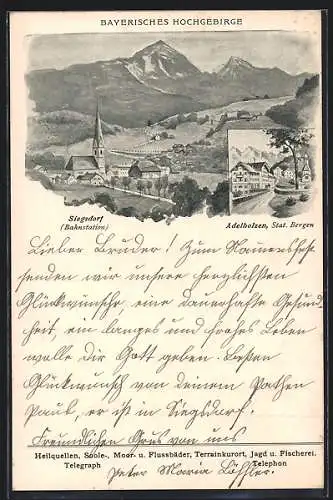 BAYERISCHES HOCHGEBIRGE
Siegsdorf
(Bahnstation)
Adelholzen, Stat. Bergen
Lieber Bruder! Zum Namensfeste
senden wir unsere herzlichsten
Glückwünsche, eine dauerhafte Gesund
heit, ein langes und frohes Leben
wolle Dir Gott geben. Besten
Glückwunsch von deinem Pathen
Paul, er ist in Siegsdorf.
Freundlichen Gruß von uns
Heilquellen, Soole-, Moor- u. Flussbäder, Terrainkurort, Jagd u. Fischerei.
Telegraph Telephon
Peter Maria